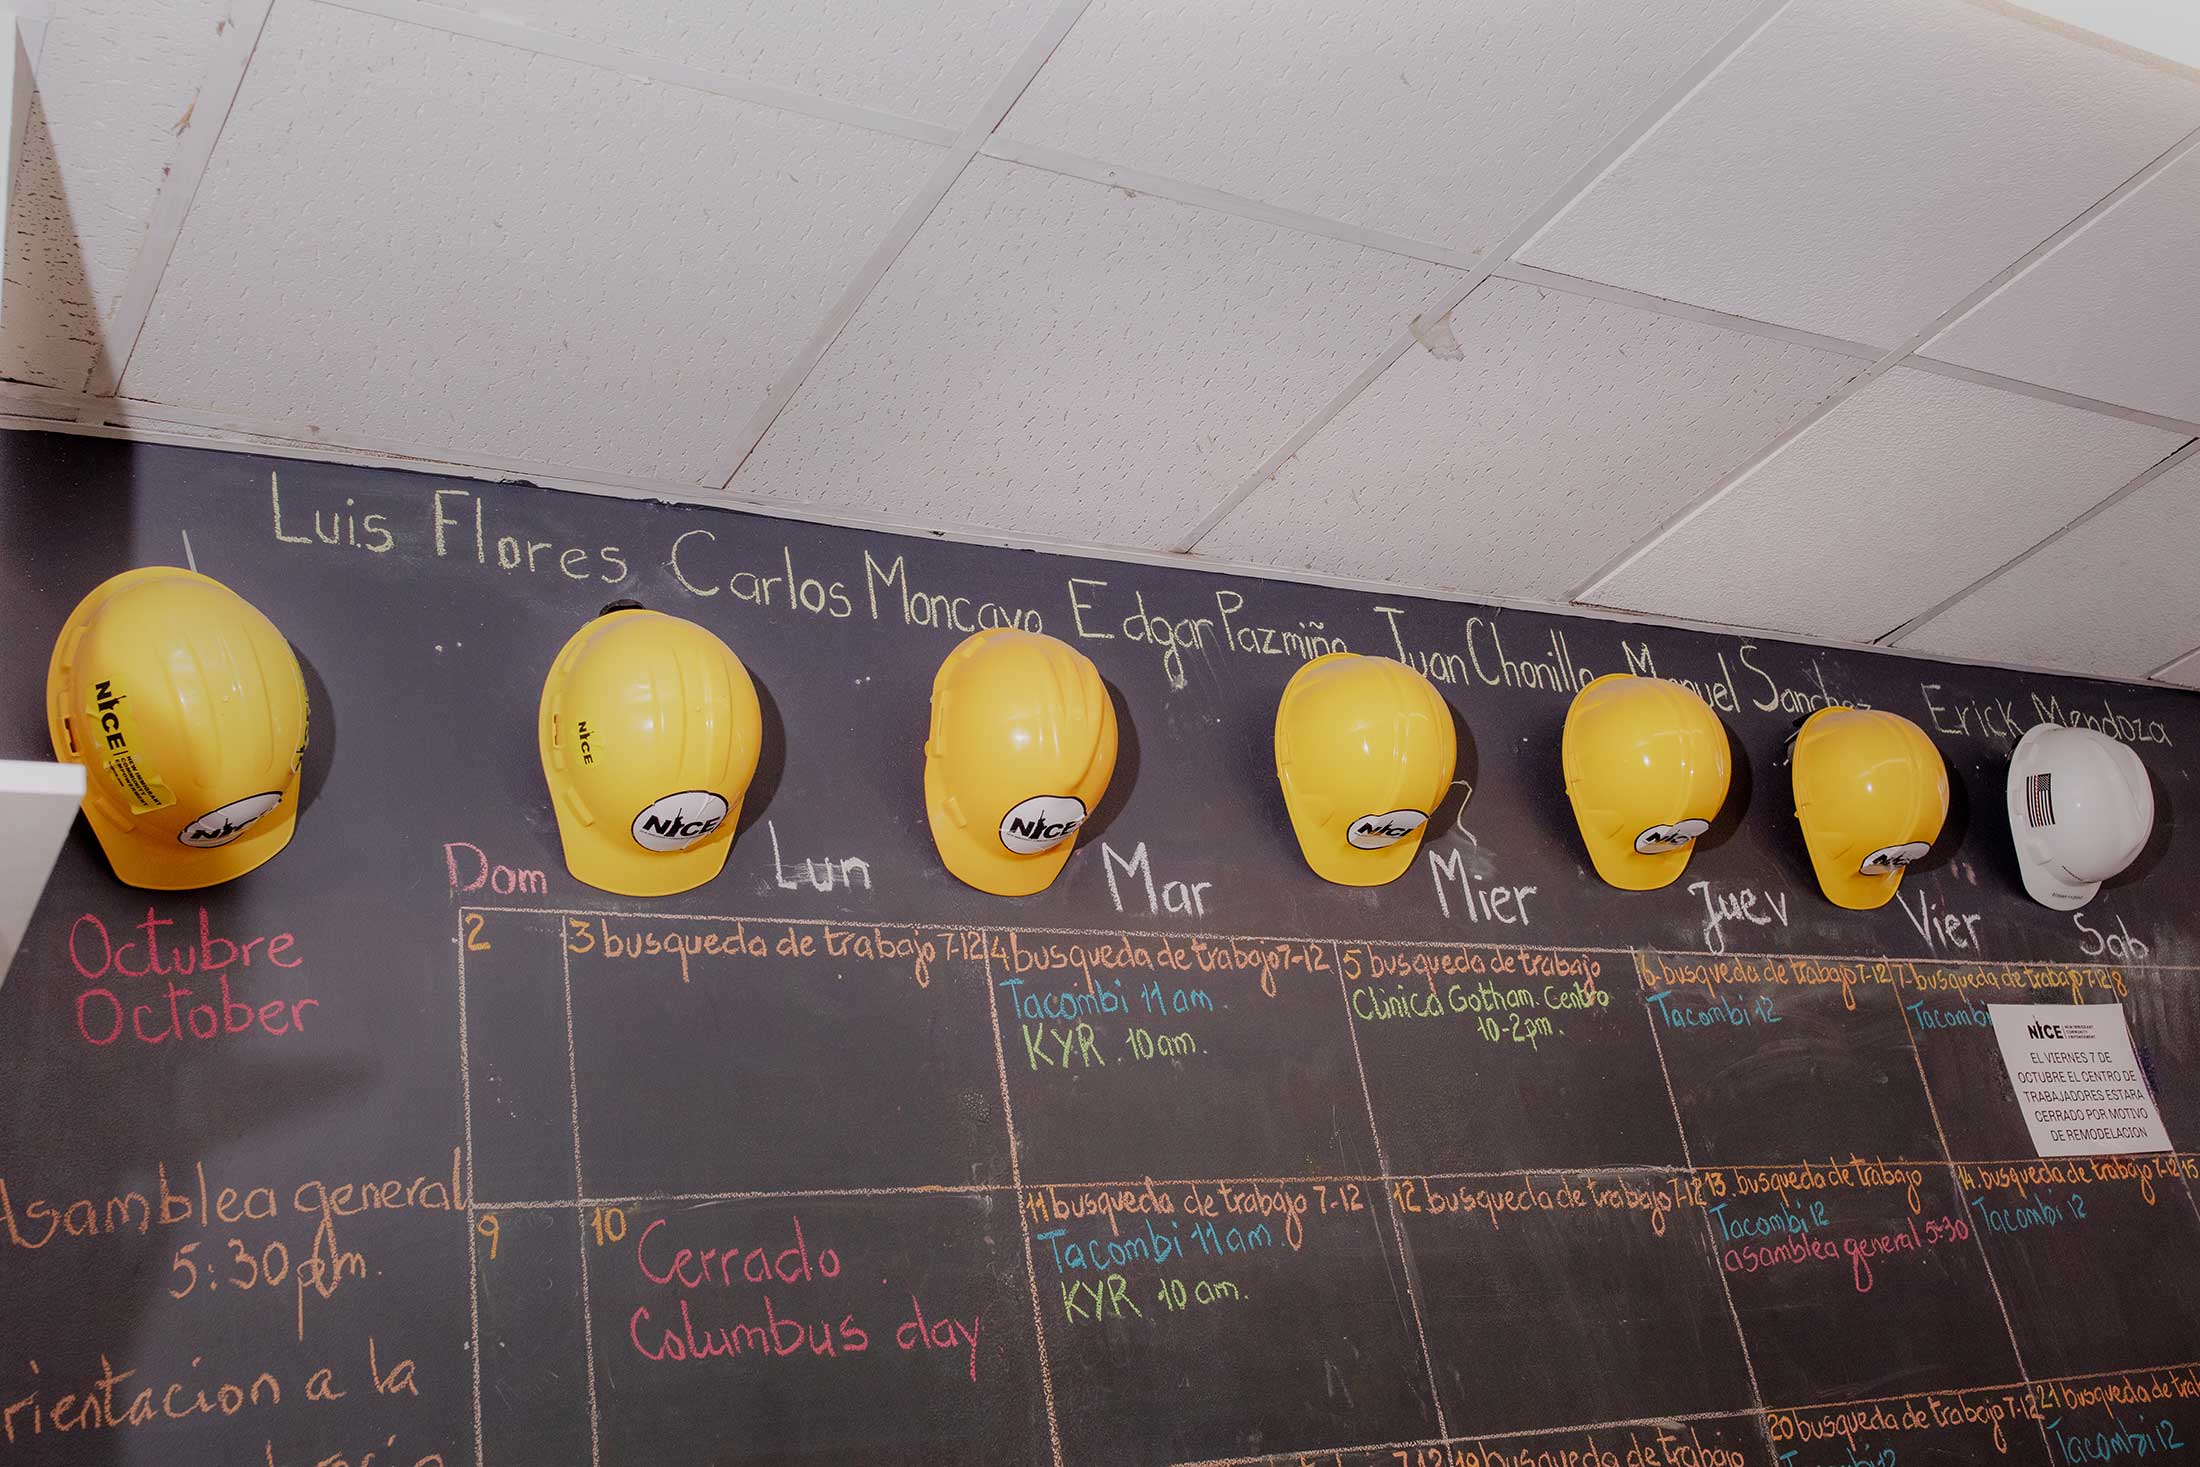 Luis Flores Carlos Moncayo Edgar Pazmiño Juan Chonillo Manuel Sanchez Erick Mendoza
NICE
NEW IMMIGRANT
COMMUNITY
EMPOWERMENT
NICE
NICE
NICE
NICE
NICE
NICE
NICE
Dom Lun Mar Mier Juev Vier Sab
Octubre
October
2
3 busqueda de trabajo 7-12
4 busqueda de trabajo 7-12
Tacombi 11 am.
KYR. 10 am.
5 busqueda de trabajo
Clinica Gotham. Centro
10-2pm.
6-busqueda de trabajo 7-12
Tacombi 12
7-busqueda de trabajo 7-12
Tacombi
8
NICE NEW IMMIGRANT
COMMUNITY
EMPOWERMENT
EL VIERNES 7 DE
OCTUBRE EL CENTRO DE
TRABAJADORES ESTARA
CERRADO POR MOTIVO
DE REMODELACION
Asamblea general
5:30 pm.
9
10
Cerrado
Columbus day
11 busqueda de trabajo 7-12
Tacombi 11 am.
KYR 10 am.
12 busqueda de trabajo 7-12
13. busqueda de trabajo
Tacombi 12
asamblea general 5:30
14. busqueda de trabajo 7-12
Tacombi 12
15
rientacion a la
7-12
19 busqueda de trabajo
20 busqueda de trabajo 7-12
Tacombi 12
21 busqueda de trab
Tacombi 12